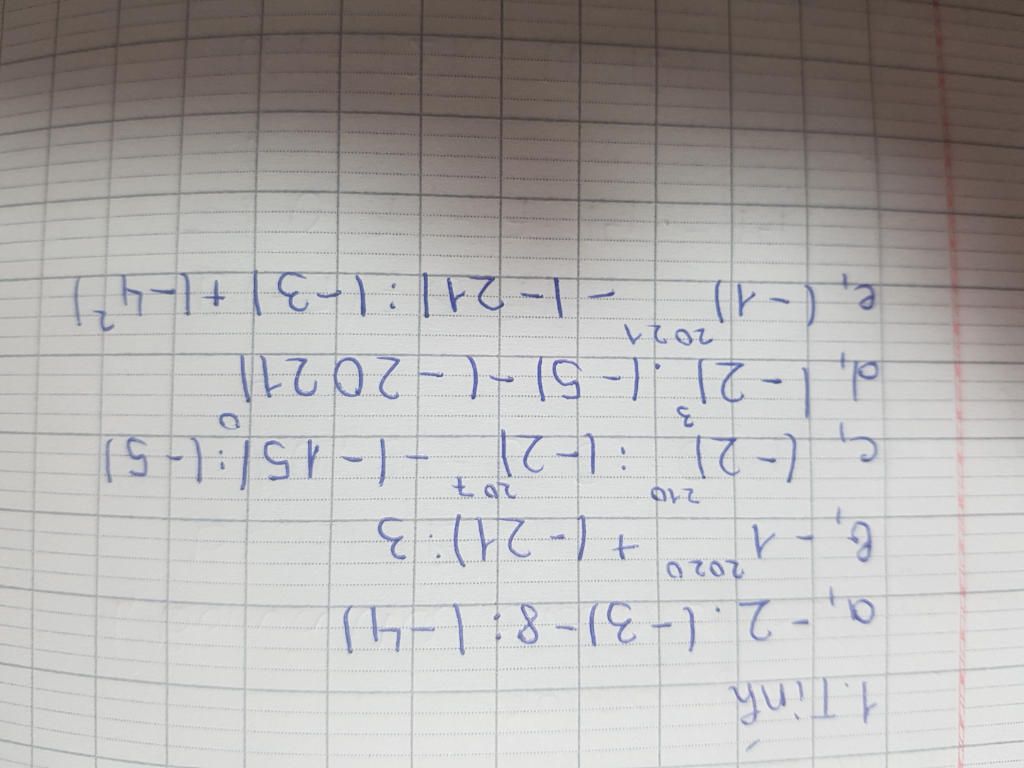 1. Tính
a, - 2 . (-3) - 8 : (-4)
b, - 1²⁰²⁰ + (-21) : 3
c, (-2)²¹⁰ : (-2)²⁰⁷ - (-15) : (-5)
d, (-2)³ . (-5) - (-2021)⁰
e, (-1)²⁰²¹ - (-21) : (-3) + (-4²)